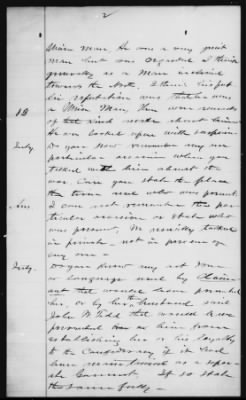 2
Union man. He was a very quiet
man but was regarded I think
generally as a man inclined
towards the North. I think
his reputation was that he was
a Union Man, there were rumors
of that kind made about him
He was looked upon with suspicion
18
Inty.
Do you now remember any one
particular occasion when you
talked with him about the
war. Can you state the place
the time and who was present.
Ans
I can not remember the par-
ticular occasion or state who
was present, We usually talked
in private not in presence of
any one -
Inty.
Do you know any act done
or language used by Claim-
ant that would have prevented
her, or by her husband said
John W. Todd that would have
prevented her or him from
establishing her or his loyalty
to the Confederacy if it had
been maintained as a sepa-
rate Government. If so state
the same fully -